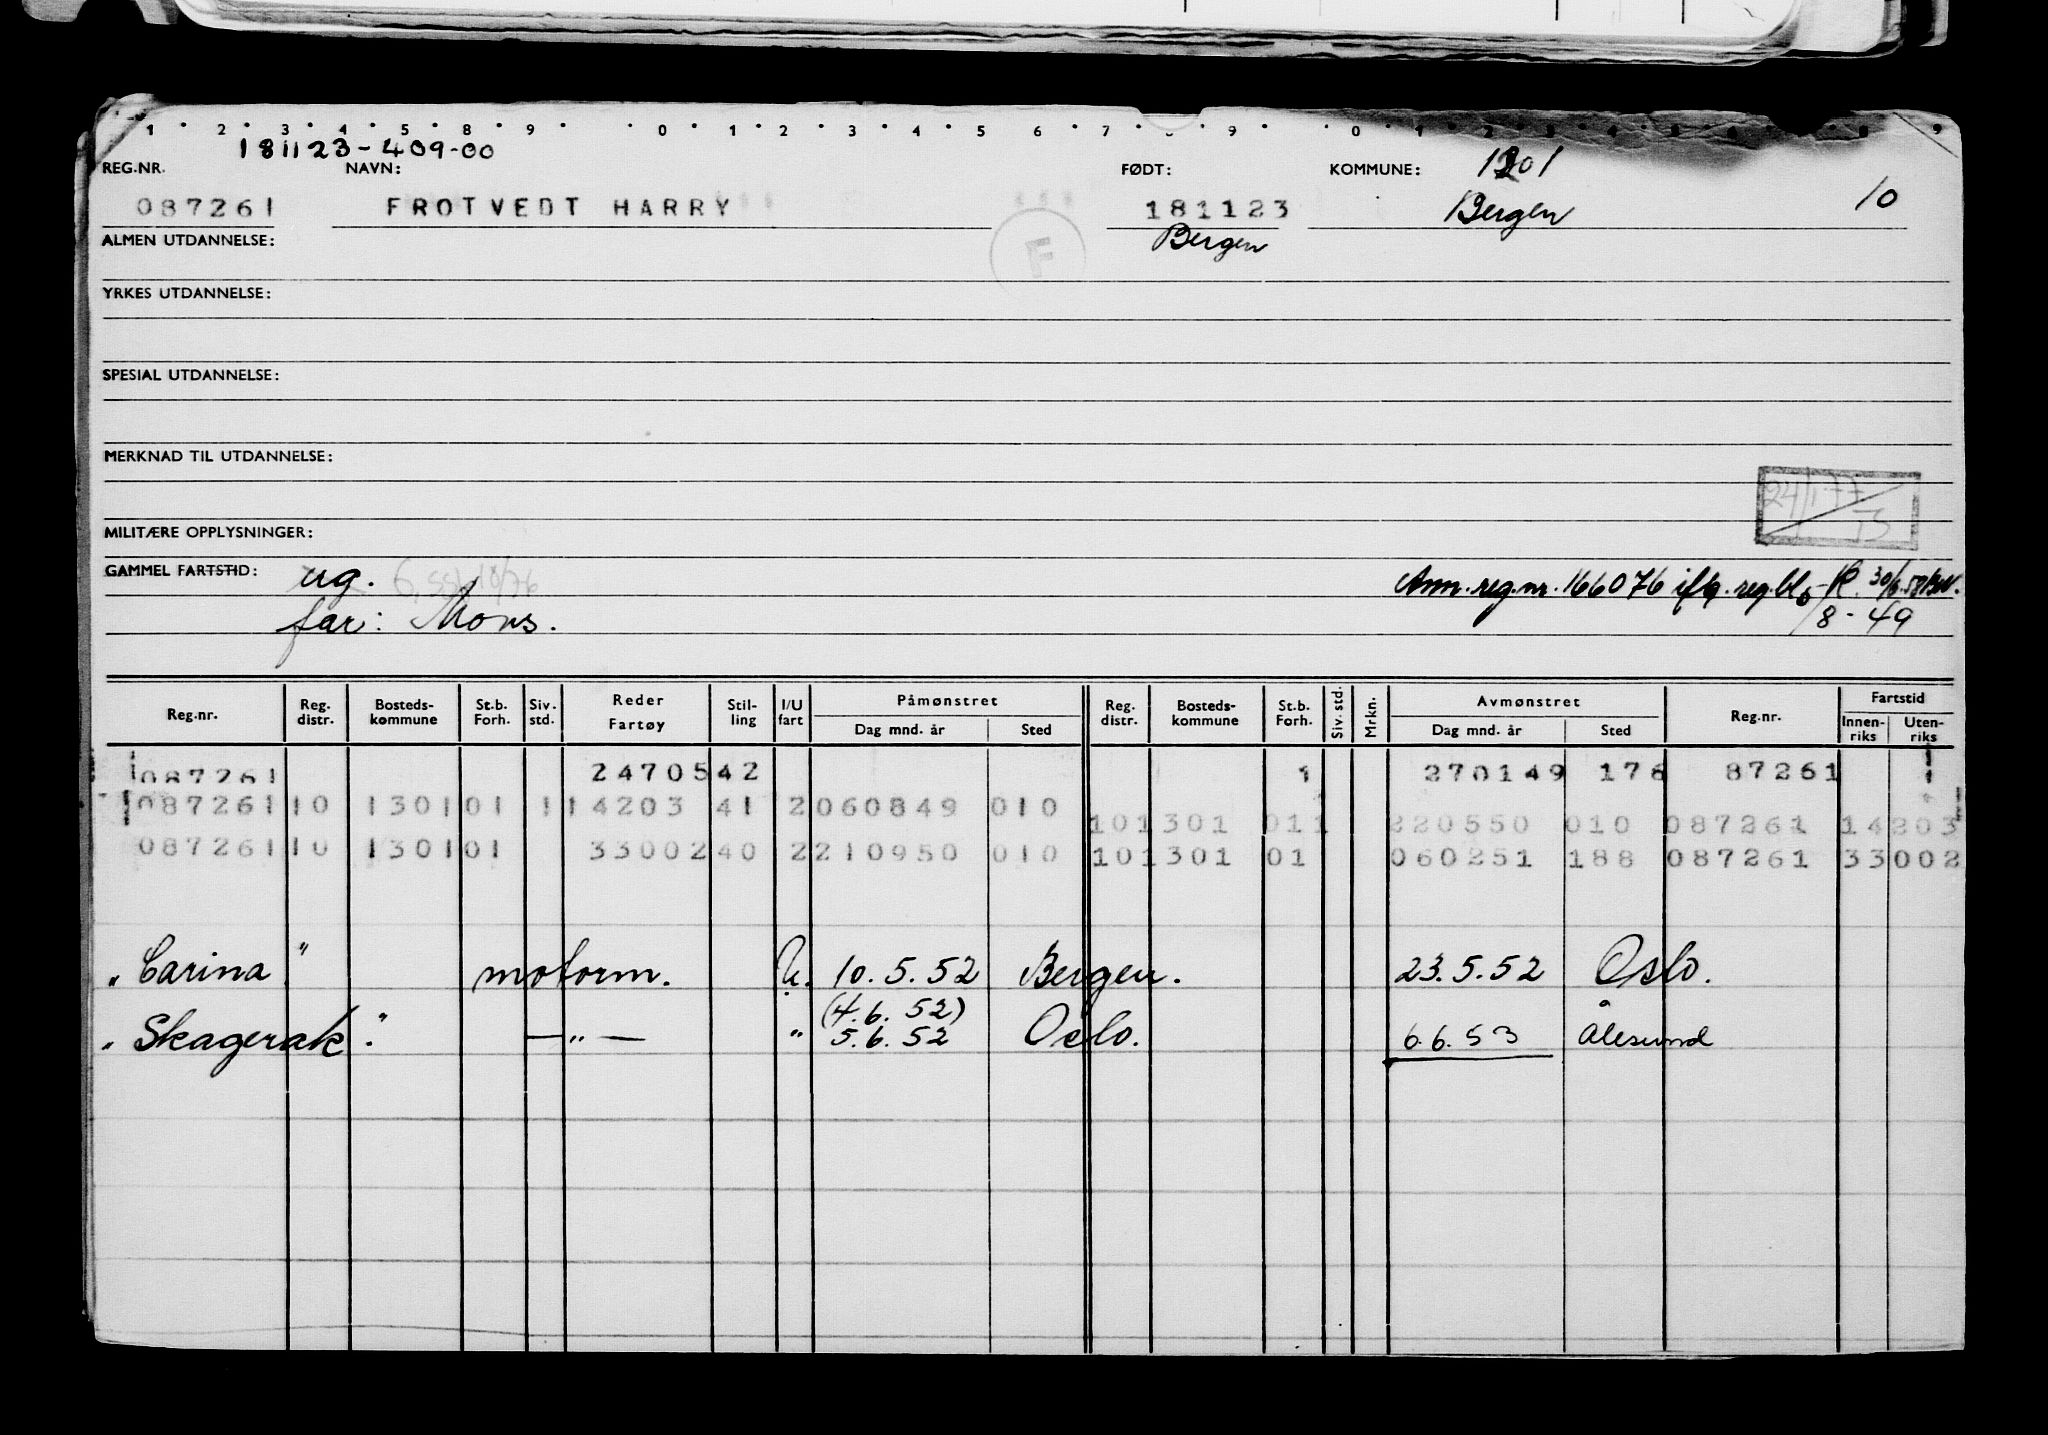 1 2 3 4 5 8 9 0 1 2 3 4 5 6 7 9 0 1 2 8 9
181123-409-00
REG.NR. NAVN: FØDT: KOMMUNE: 1201
087261 FROTVEDT HARRY 181123 Bergen 10
ALMEN UTDANNELSE: F Bergen
YRKES UTDANNELSE:
SPESIAL UTDANNELSE:
MERKNAD TIL UTDANNELSE:
24/1-77
TS
MILITÆRE OPPLYSNINGER:
GAMMEL FARTSTID: ug. Ann.reg.nr. 166076 iflg. reg.bl.
far: Mons. 8-49
Reg.nr. Reg. distr. Bosteds-kommune St.b. Forh. Siv. std. Reder Fartøy Stil-ling I/U fart Påmønstret Reg. distr. Bosteds-kommune St.b. Forh. Siv. std. Mrkn. Avmønstret Reg.nr. Fartstid
Dag mnd. år Sted Dag mnd. år Sted Innen-riks Uten-riks
087261 2470542 1 270149 176 87261
087261 10 1301 01 1 14203 41 2 060849 010 10 1301 011 220550 010 087261 14203
087261 10 1301 01 33002 40 2 210950 010 10 1301 01 060251 188 087261 33002
"Carina" motorm. U. 10.5.52 Bergen. 23.5.52 Oslo.
(4.6.52)
"Skagerak". —"— " 5.6.52 Oslo. 6.6.53 Ålesund